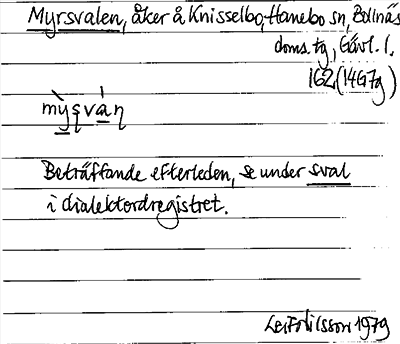 Myrsvalen, åker å Knisselbo, Hanebo sn, Bollnäs
doms. tg, Gävl. l.
162 (14G7g)
mỳṣván
Beträffande efterleden, se under sval
i dialektordregistret.
Leif Nilsson 1979